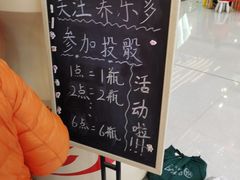 关注养乐多
参加投骰
1点=1瓶
2点=2瓶
⋮
6点=6瓶
活动啦!!!